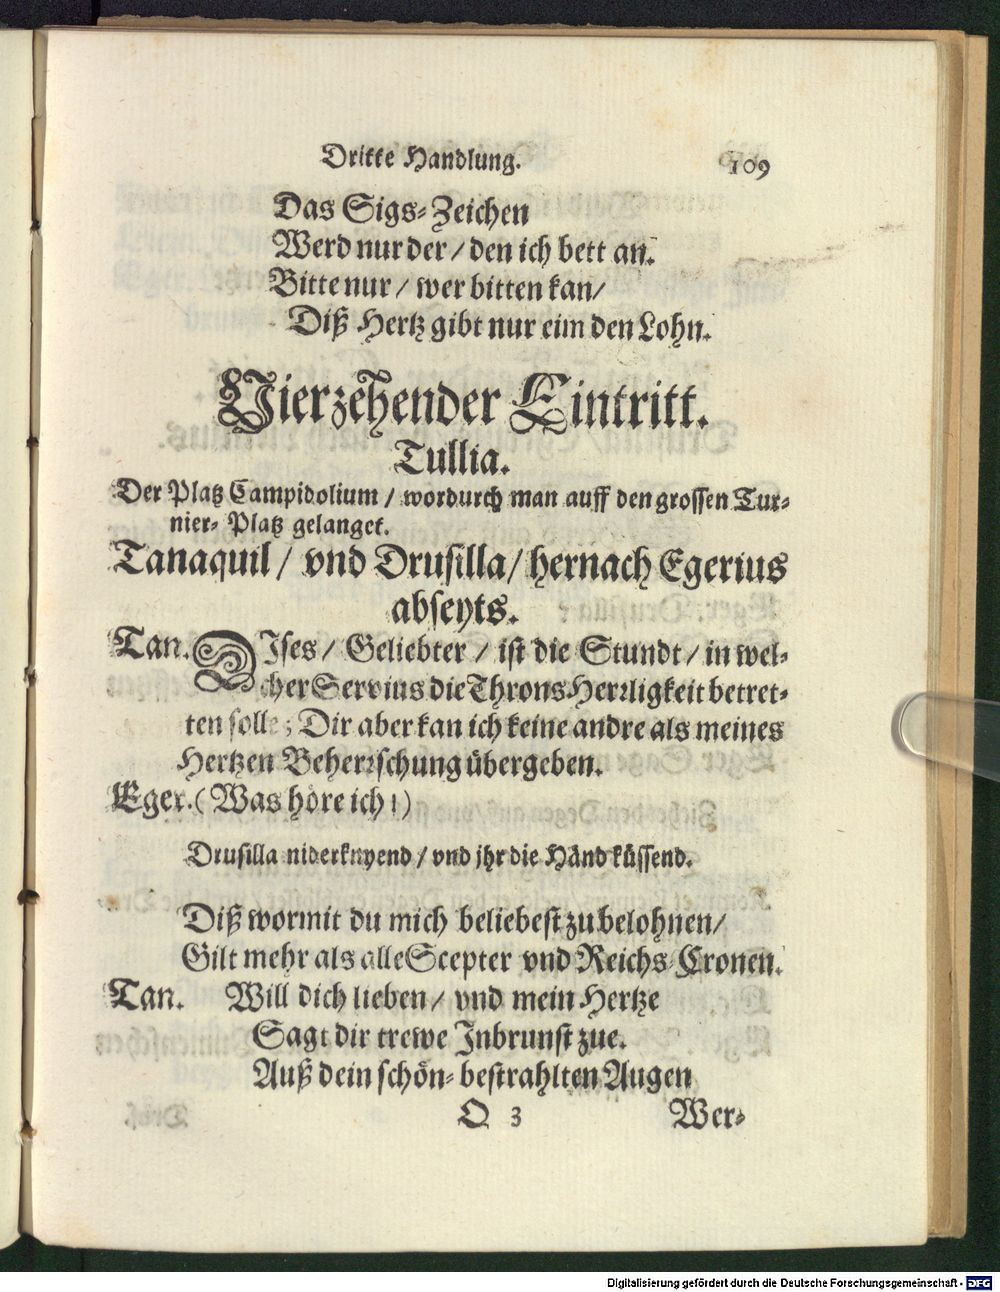 Dritte Handlung. 109
Das Sigs-Zeichen
Werd nur der / den ich bett an.
Bitte nur / wer bitten kan /
Diß Hertz gibt nur eim den Lohn.
Vierzehender Eintritt.
Tullia.
Der Platz Campidolium / wordurch man auff den grossen Tur-
nier- Platz gelanget.
Tanaquil / vnd Drusilla / hernach Egerius
abseyts.
Tan. DIses / Geliebter / ist die Stundt / in wel-
cher Servius die Throns Herrligkeit betret-
ten solle; Dir aber kan ich keine andre als meines
Hertzen Beherrschung übergeben.
Eger. (Was höre ich!)
Drusilla niderknyend / vnd jhr die Händ küssend.
Diß wormit du mich beliebest zu belohnen /
Gilt mehr als alle Scepter vnd Reichs-Cronen.
Tan. Will dich lieben / vnd mein Hertze
Sagt dir trewe Inbrunst zue.
Auß dein schön- bestrahlten Augen
O 3 Wer-
Digitalisierung gefördert durch die Deutsche Forschungsgemeinschaft - DFG